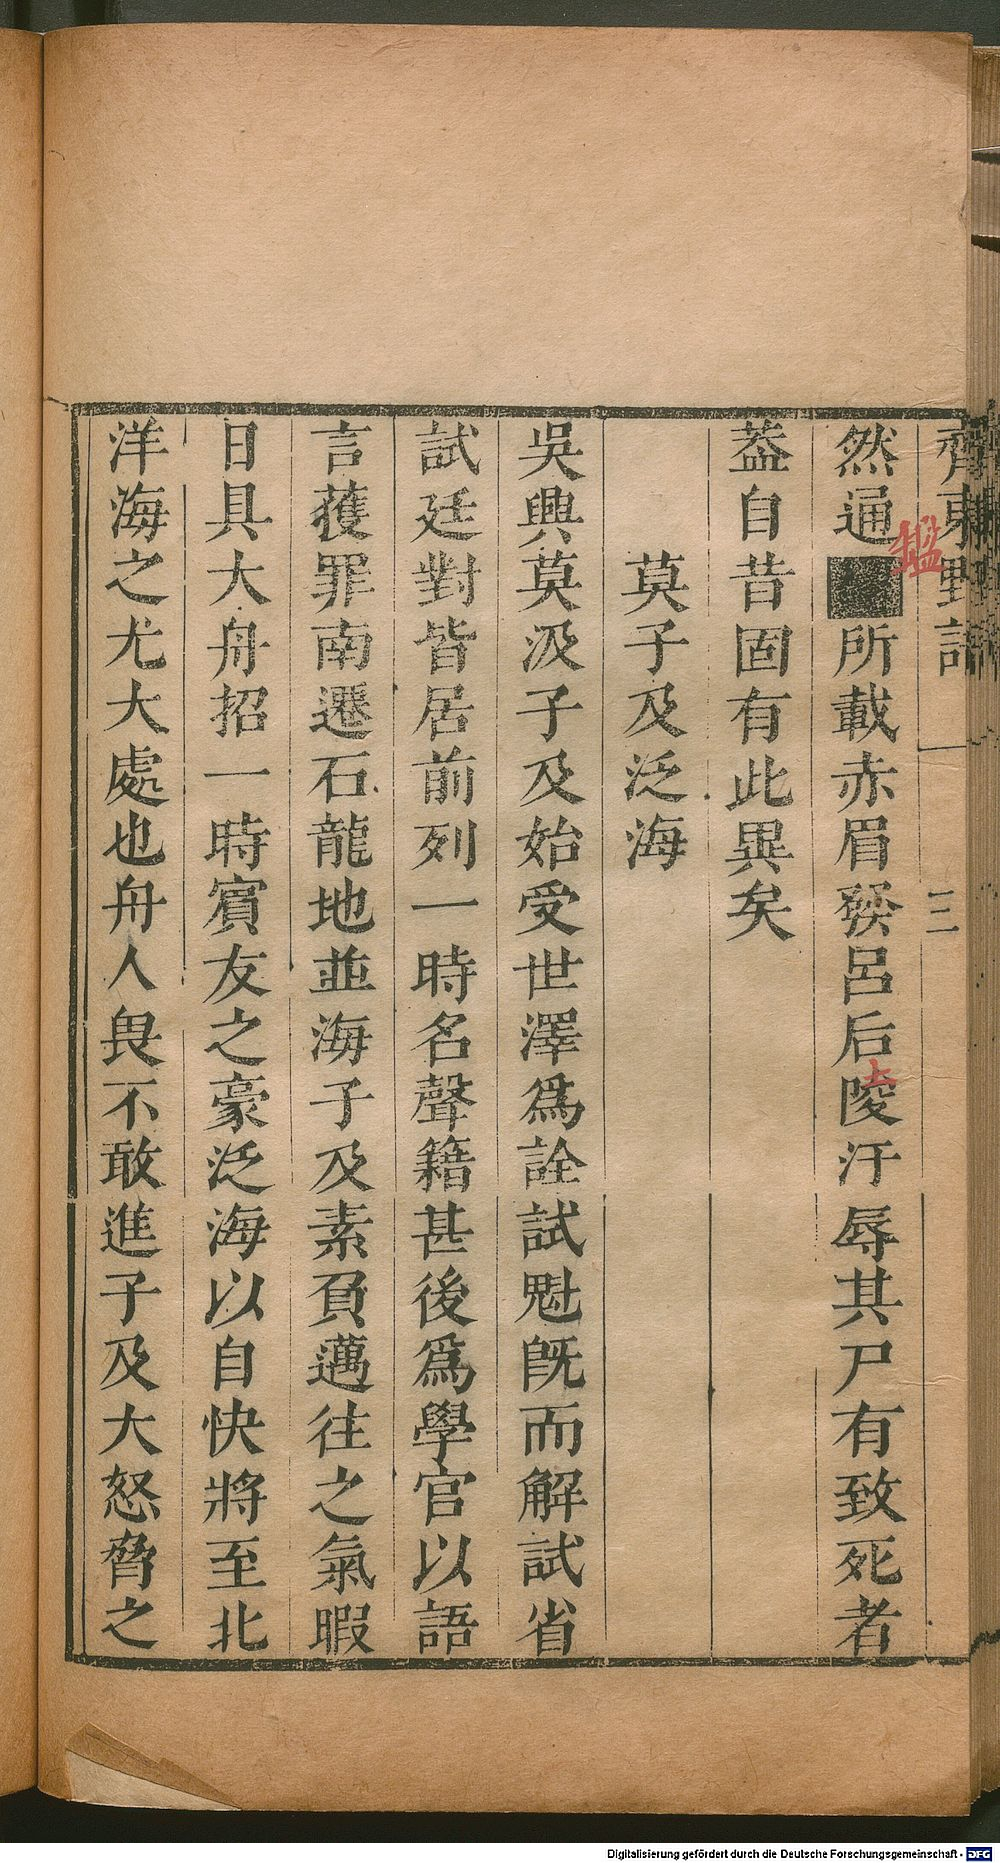 齊東野語
三
然通■所載赤眉發呂后陵汙辱其尸有致死者
鑑
葢自昔固有此異矣
莫子及泛海
吳興莫汲子及始受世澤爲詮試魁旣而解試省
試廷對皆居前列一時名聲籍甚後爲學官以語
言獲罪南遷石龍地並海子及素負邁往之氣暇
日具大舟招一時賓友之豪泛海以自快將至北
洋海之尤大處也舟人畏不敢進子及大怒脅之
Digitalisierung gefördert durch die Deutsche Forschungsgemeinschaft - DFG